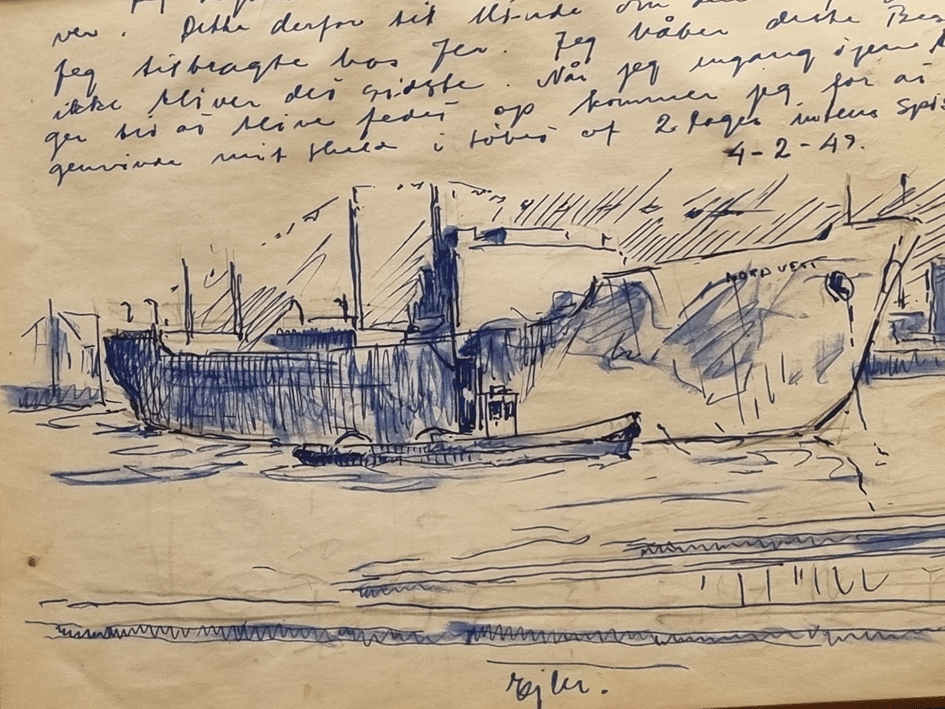 ver. Dette derfor til Minde om
jeg tilbragte hos Jer. Jeg håber dette Bes
ikke bliver det sidste. Når jeg engang igen
ger tid at blive fedet op kommer jeg for at
genvinde mit Huld i Løbet af 2 Dages
4-2-49.
NORDVEST
Ejler.